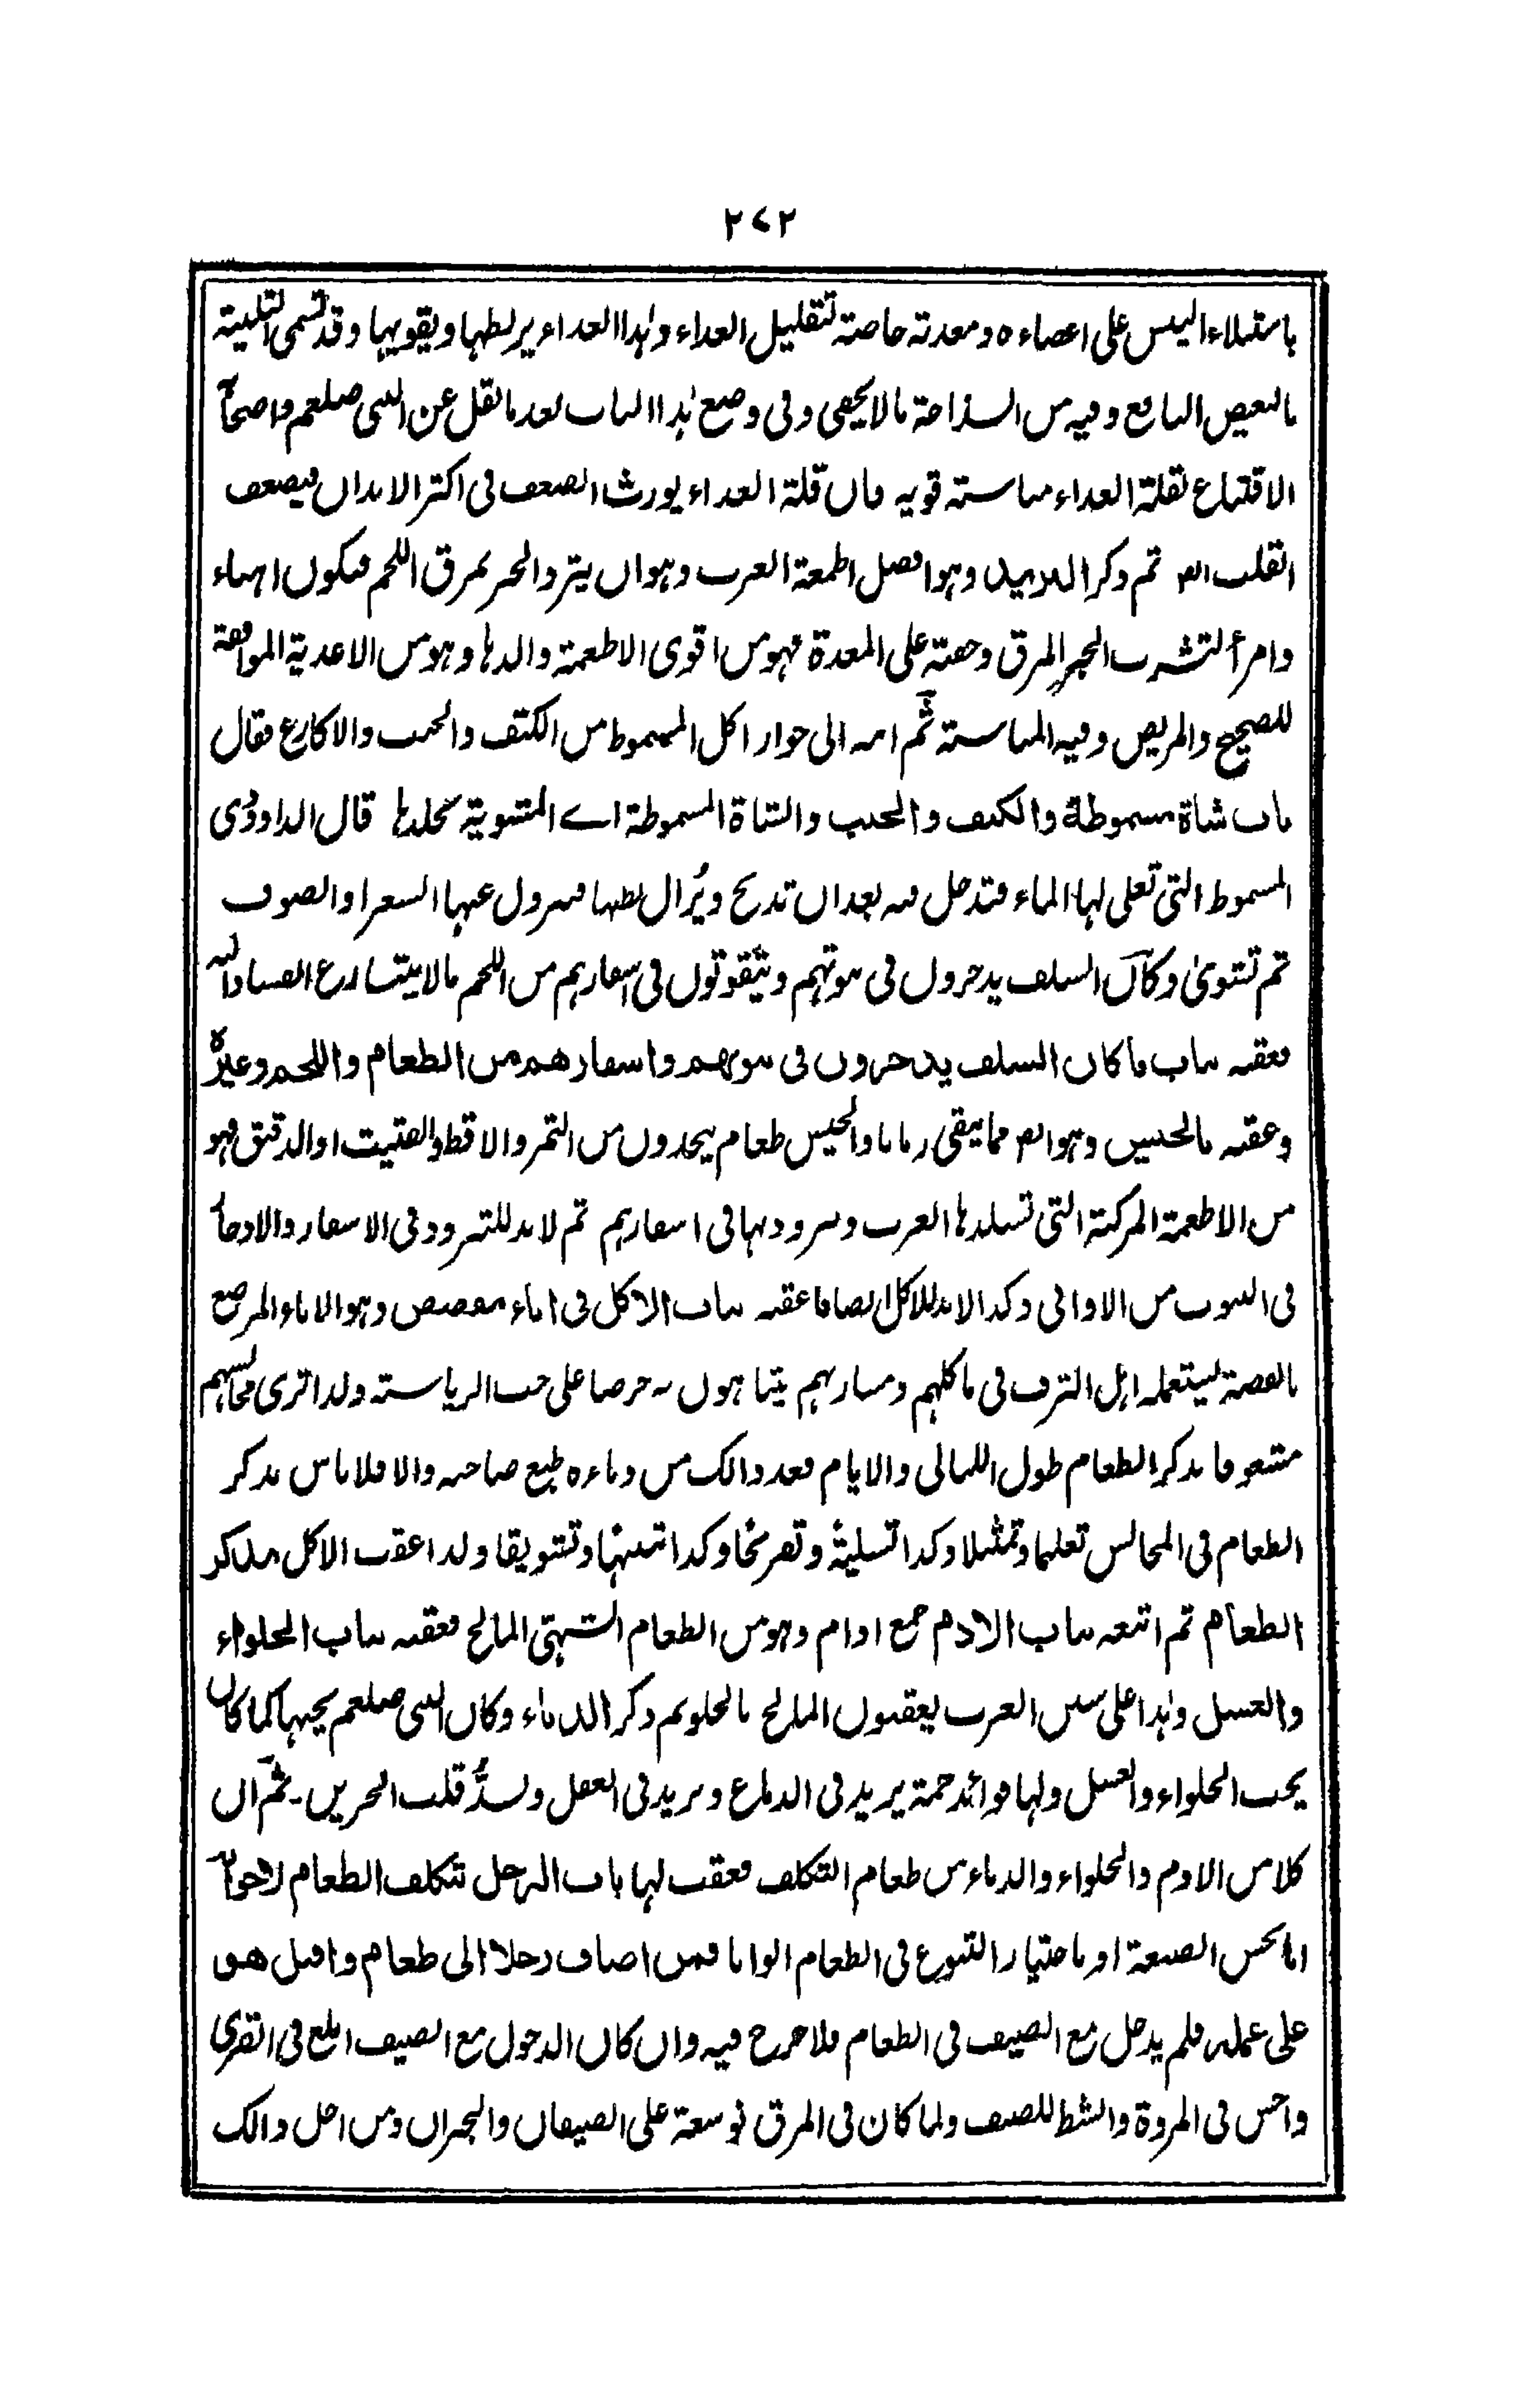 ٢٧٢
باستيلاء اليبس على اعضاءه ومعدته خاصة لتقليل الغذاء وهذا الغذاء يرطبها ويقويها وقد تسمى التلبينة
بالبغيض النافع وفيه من السذاجة مالا يخفى وفى وضع هذا الباب بعد ما نقل عن النبى صلعم واصحابه
الاقتناع بقلة الغذاء مناسبته قويه فان قلة الغذاء يورث الضعف فى اكثر الابدان فيضعف
القلب ايضا ثم ذكر الثريد وهو افضل اطعمة العرب وهو ان يثرد الخبز بمرق اللحم فيكون اهناء
وامرأ لتشرب الخبز المرق وخفته على المعدة فهو من اقوى الاطعمة والذها وهو من الاغذية الموافقة
للصحيح والمريض وفيه المناسبته ثم انه الى جواز اكل المسموط من الكتف والجنب والاكارع فقال
باب شاة مسموطة والكتف والجنب والشاة المسموطة اے المشوية بجلدها قال الداودى
المسموط التى تغلى لها الماء فتدخل فيه بعد ان تذبح ويُزال بطنها فيزول عنها الشعر او الصوف
ثم تشوىٰ وكان السلف يدخرون فى بيوتهم ويتقوتون فى اسفارهم من اللحم مالا يتسارع الفساد اليه
فعقبه باب ما كان السلف يدخرون فى بيوتهم واسفارهم من الطعام واللحم وغيره
وعقبه بالحيس وهو ايضا مما يبقى زمانا والحيس طعام يتخذون من التمر والاقط والفتيت او الدقيق فهو
من الاطعمة المركبة التى تستلذها العرب وتزودبها فى اسفارهم ثم لا بد للتزود فى الاسفار والادخار
فى البيوت من الاوانى وكذا لابد للاكل ايضا فاعقبه باب الاكل فى اناء مفضض وهو الاناء المرصع
بالفضة ليستعمله اهل الترف فى ماكلهم ومشاربهم يتباهون به حرصا على حب الرياسته ولذا ترى مجالسهم
مشغوفا بذكر الطعام طول الليالى والايام فعد ذالك من دناءه طبع صاحبه والا فلا باس بذكر
الطعام فى المجالس تعليما وتمثيلا وكذا تسلية وتفريحا وكذا تشهيا وتشويقا ولذا عقب الاكل بذكر
الطعام ثم اتبعه باب الادم جمع ادام وهو من الطعام الشهى المالح فعقبه باب الحلواء
والعسل وهذا على سنن العرب يعقبون المالح بالحلو ثم ذكر الدباء وكان النبى صلعم يحبها كما كان
يحب الحلواء والعسل ولها فوائد جمة يزيد فى الدماغ ويزيد فى العقل ويسدُّ قلب الحزين۔ ثم ان
كلا من الادم والحلواء والدباء من طعام التكلف فعقب لها باب الرجل يتكلف الطعام لاخوانه
اما بحسن الصنعة او باختيار التنوع فى الطعام الوانا فمن اضاف رجلا الى طعام واقبل هو
على عمله فلم يدخل مع الضيف فى الطعام فلا حرج فيه وان كان الدخول مع الضيف ابلغ فى القرى
واحسن فى المروة وانشط للضيف ولما كان فى المرق توسعة على الضيفان والجيران ومن اجل ذالك